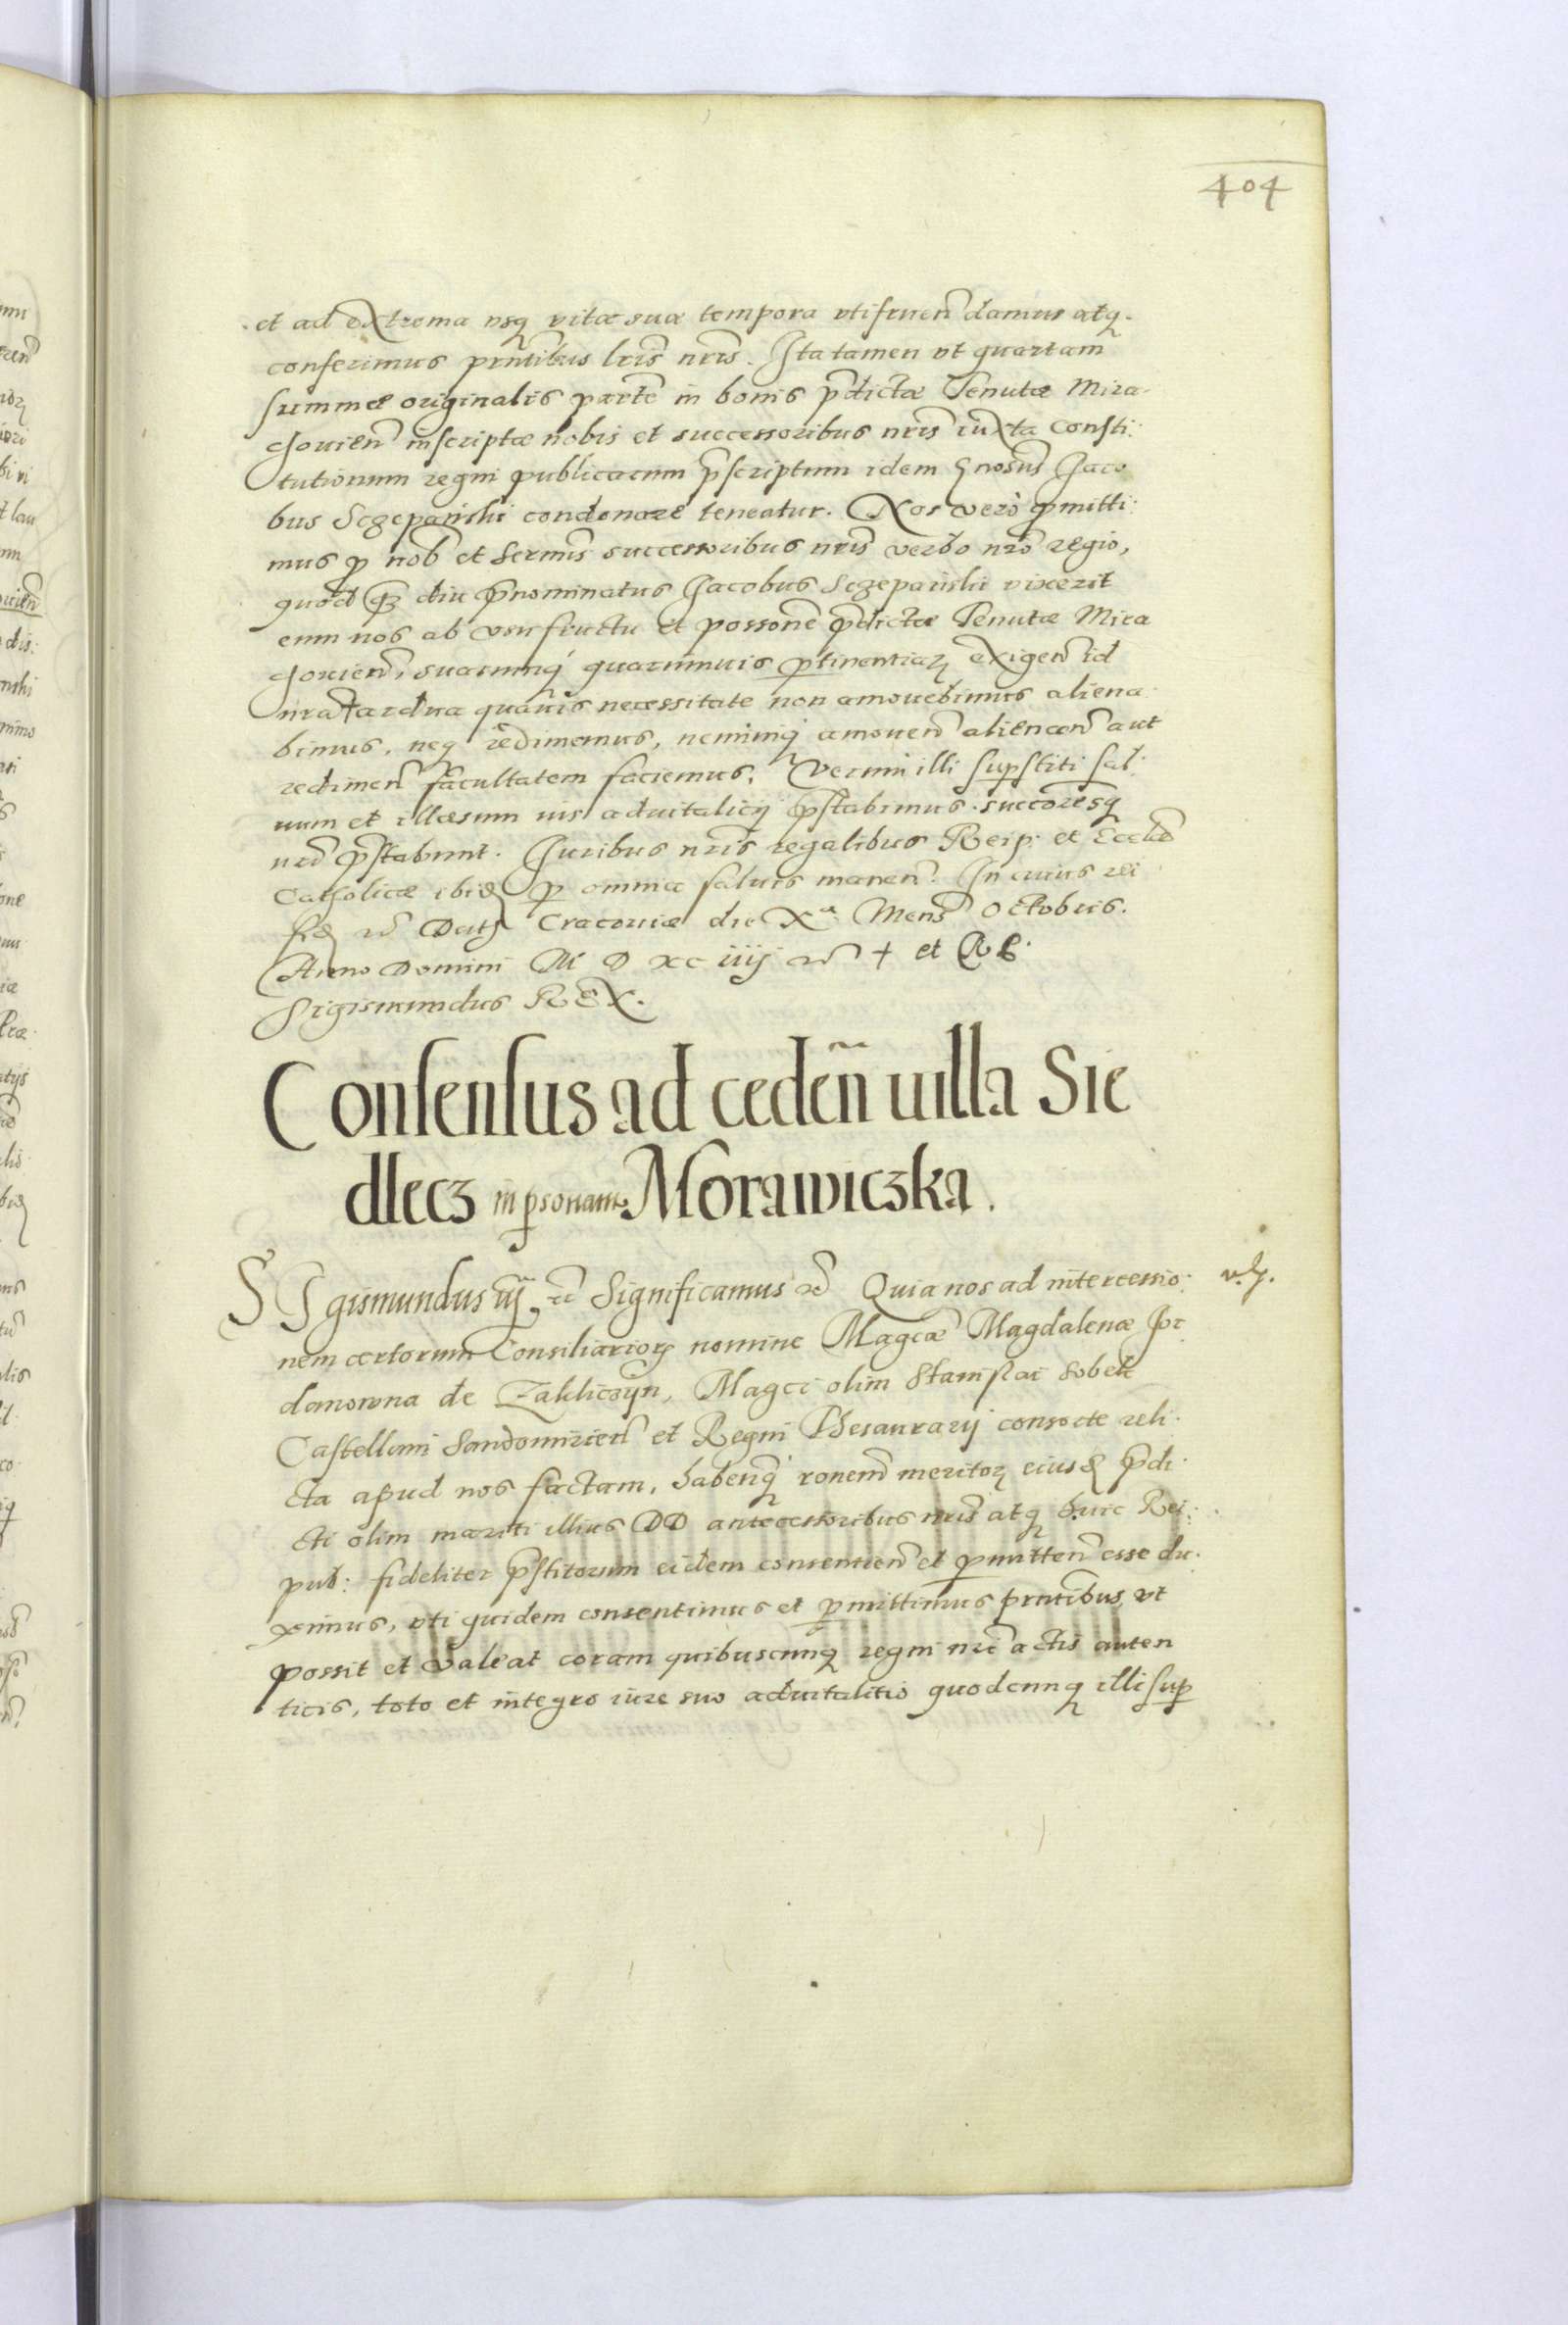 404
et ad extrema usq vitae suae tempora utifruen damus atq.
conferimus prntibus lris nris. Ita tamen ut quartam
summae originalis parte in bonis pdictae Tenutae Mira
chovien inscriptae nobis et successoribus nris iuxta Consti:
tutionum regni publicarum pscriptum idem Gnosus Jaco
bus Sczepański condonare teneatur. Nos vero pmitti:
mus p nob et sermis successoribus nris verbo nro regio,
quod diu pnominatus Jacobus Sczepański vixerit
eum nos ab usufructu et possone pdictae Tenutae Mira
choviens, suarumq quarumvis ptinentiar exigen id
nra ardua quavis necessitate non amovebimus aliena
bimus, neq redimemus, neminiq amoven alienan aut
redimen facultatem faciemus, Verum illi supstiti sal:
vum et illaesum ius advitalicij pstabimus. succoresq
nri pstabunt. Juribus nris regalibus Reip: et Eccliae
Catholicae ibid p omnia salvis manen. In cuius rei
fid etc Dat Cracoviae die Xa Mens Octobris.
Anno Domini M D xc iiij etc + et R l.
Sigismundus REX.
Consensus ad ceden uilla Sie
dlecz in psonam Morawiczka.
SIgismundus iij etc Significamus etc Quia nos ad intercessio:
nem certorum Consiliarior nomine Magcae Magdalenae Jor
danowna de Zakliczyn, Magci olim Stanislai Sobek
Castellani Sandomirien et Regni Thesaurarij consorte reli:
cta apud nos factam, habenq ronem meritor eiusd pdi:
cti olim mariti illius DD antecessoribus nris atq huic Rei:
pub: fideliter pstitorum eidem consentien et pmitten esse du:
ximus, uti quidem consentimus et pmittimus prntibus, ut
possit et valeat coram quibuscunq regni nri actis auten
ticis, toto et integro iure suo advitalitio quodcunq illi sup